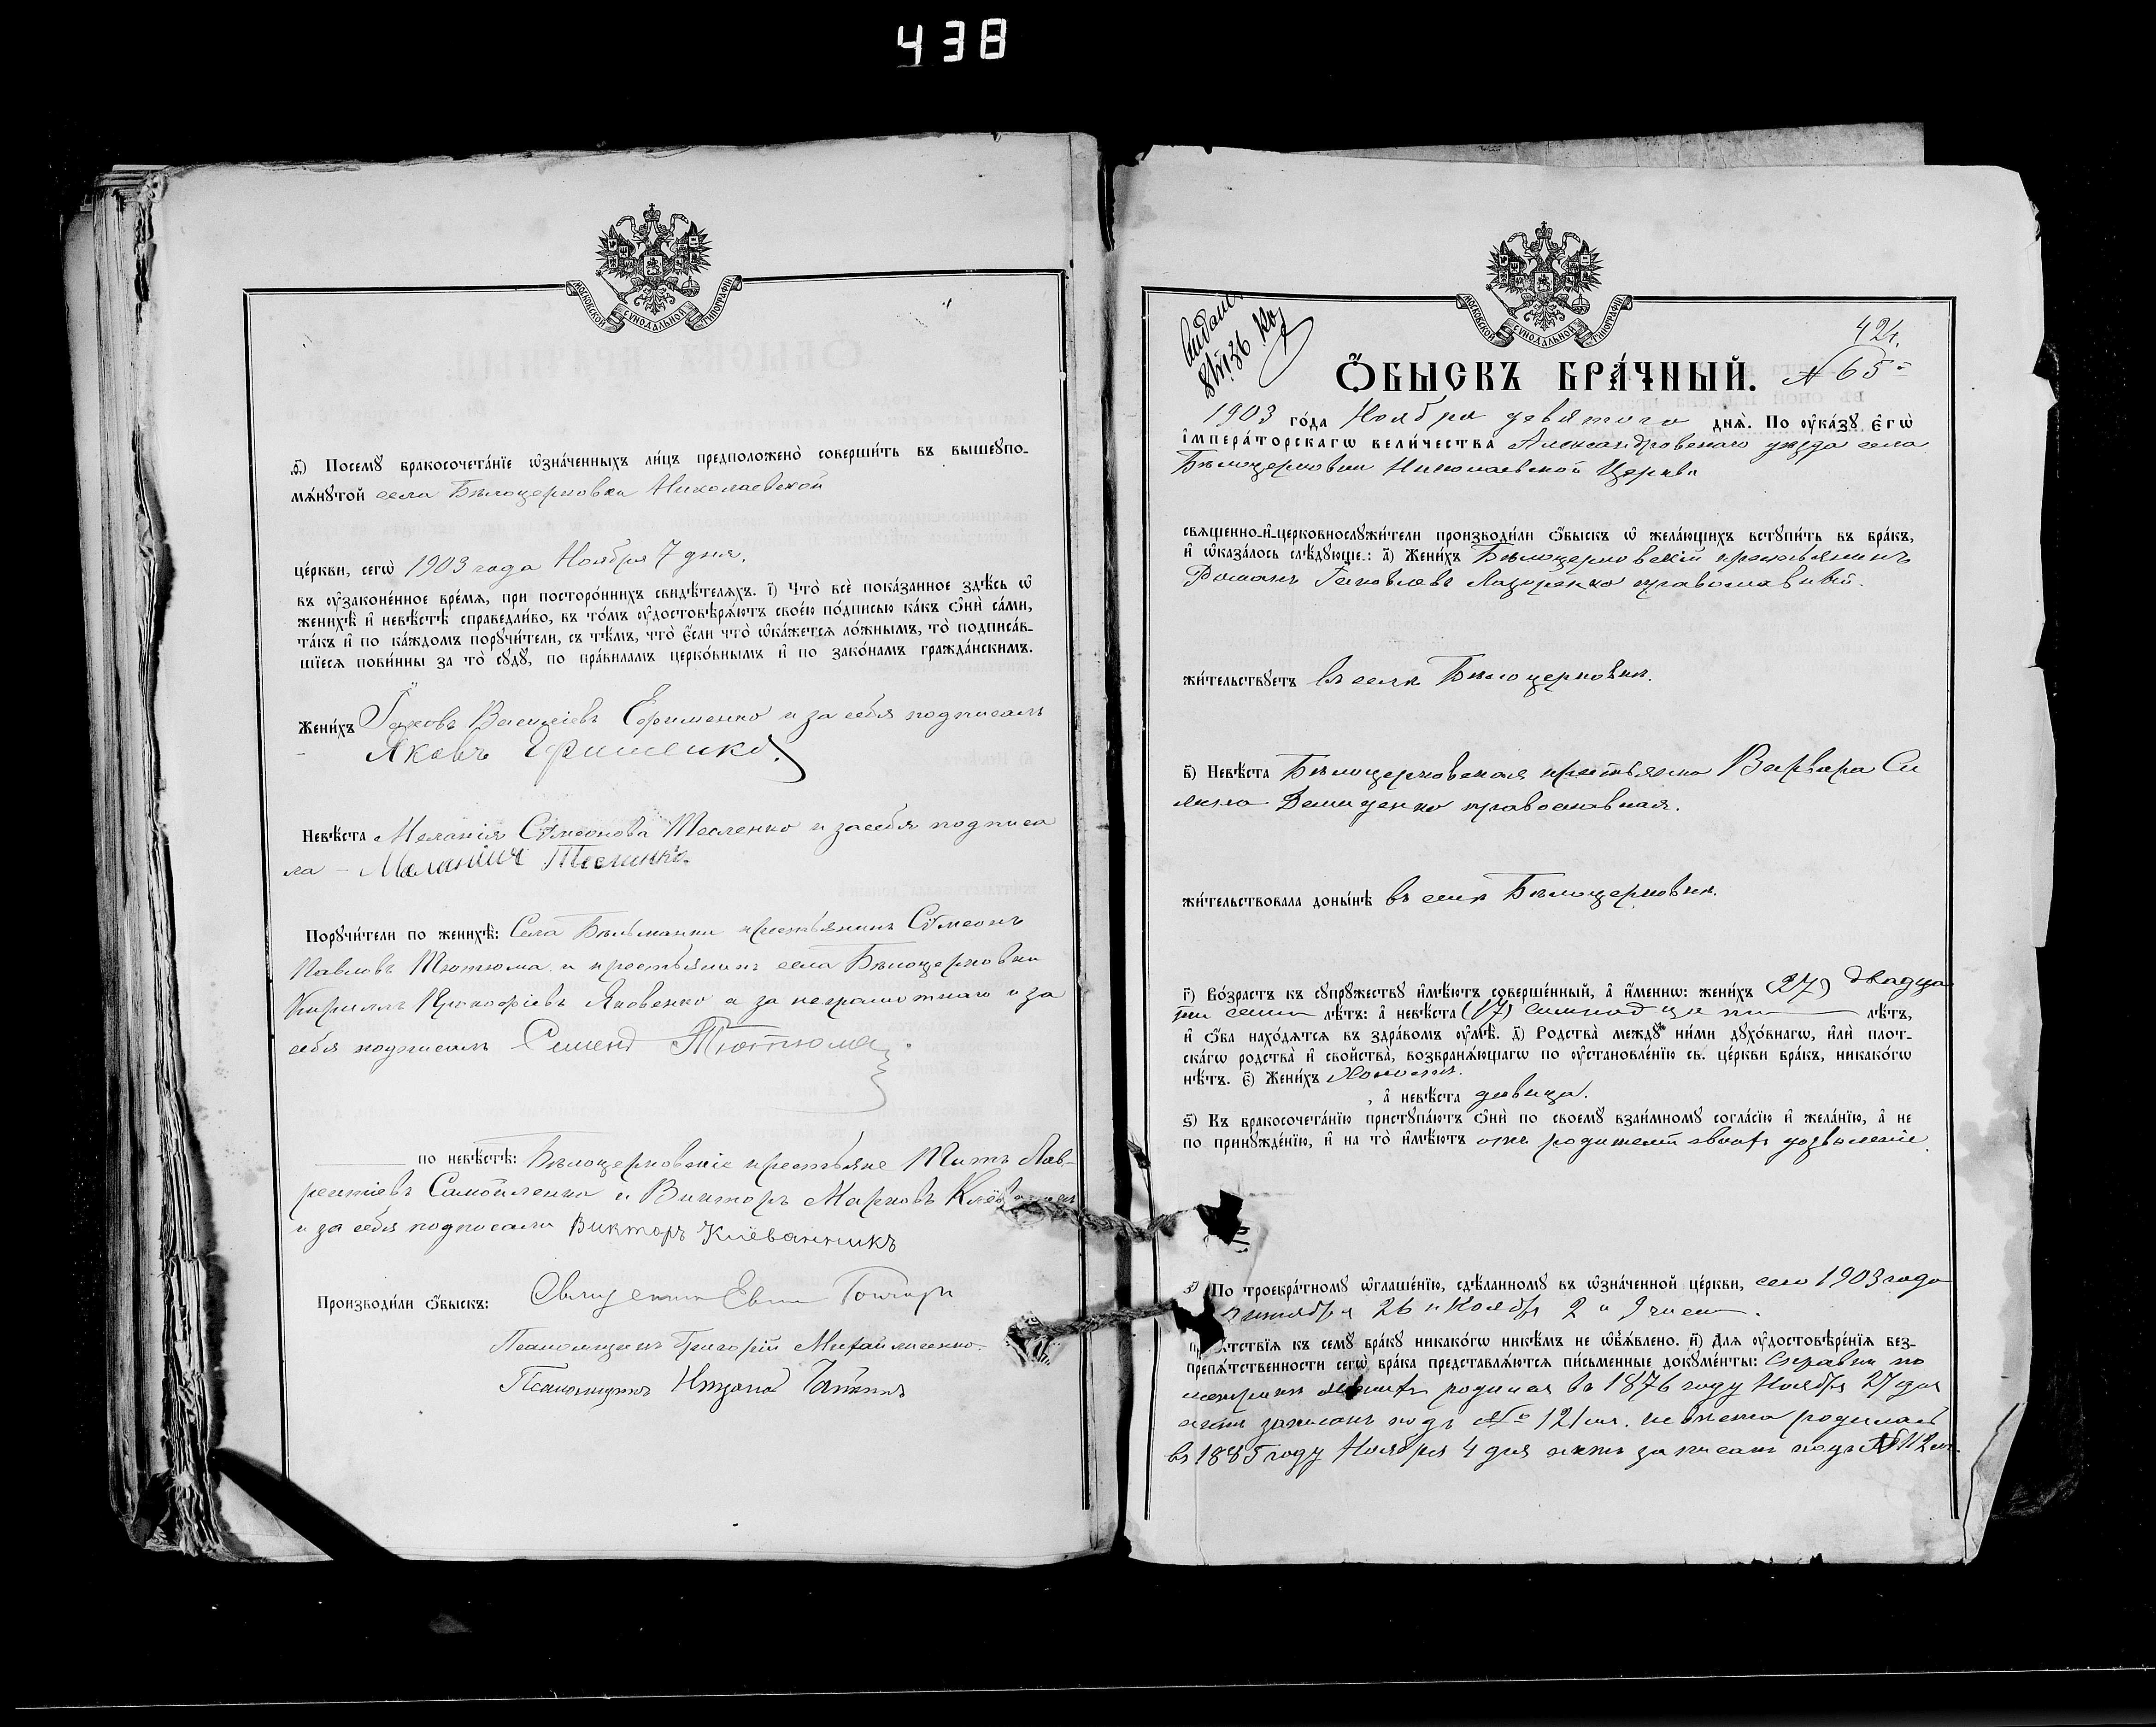 438
МОСКОВСКОЙ СѴНОДАЛЬНОЙ ТИПОГРАФІИ
ѳ҃) Посемꙋ бракосочета́нїе ѡ҆зна́ченныхъ ли́цъ предположено̀ соверши́ть въ вышеꙋпо-
мѧ́нꙋтой села Бѣлоцерковки Николаевской
це́ркви, сегѡ̀ 1903 года Ноября 7 дня.
въ ᲂу҆законе́нное вре́мѧ, при посторо́ннихъ свидѣ́телѧхъ. і҃) Что̀ всѐ пока́занное здѣ́сь ѡ҆
женихѣ̀ и҆ невѣ́стѣ справедли́во, въ то́мъ ᲂу҆достовѣрѧ́ютъ свое́ю по́дписью ка́къ ѻ҆нѝ са́ми,
та́къ и҆ по ка́ждомъ порꙋчи́тели, съ тѣ́мъ, что̀ є҆́сли что̀ ѡ҆ка́жетсѧ ло́жнымъ, то̀ подписа́в-
шїесѧ пови́нны за то̀ сꙋдꙋ̀, по пра́виламъ церко́внымъ и҆ по зако́намъ гражда́нскимъ.
Жени́хъ Іаковъ Василіевъ Ефименко и за себя подписалъ
Яковъ Ефименко.
Невѣ́ста Меланія Сѵмеонова Тесленко и за себя подписа
ла – Маланія
Порꙋчи́тели по женихѣ̀: Села Бѣльманки крестьянинъ Сѵмеонъ
Павловъ Тютюма и крестьянинъ села Бѣлоцерковки
Кириллъ Прокофіевъ Яковенко а за неграмотнаго и за
себя подписалъ Семенъ Тютюма
по невѣ́стѣ: Бѣлоцерковскіе крестьяне Титъ Лав-
рентіевъ Самойленко и Викторъ Марковъ
и за себя подписали Викторъ Клёванникъ
Производи́ли ѻ҆́быскъ: Священникъ
Псаломщикъ Григорій Михайличенко.
Псаломщикъ
МОСКОВСКОЙ СѴНОДАЛЬНОЙ ТИПОГРАФІИ
424.
Ѻ҆́БЫСКЪ БРА́ЧНЫЙ. № 65
1903 го́да Ноября девятого днѧ̀. По ᲂу҆ка́зꙋ є҆гѡ̀
і҆мпера́торскагѡ вели́чества Александровскаго уѣзда села
Бѣлоцерковки Николаевской Церкви
свѧщенно-и҆-церковнослꙋжи́тели производи́ли ѻ҆́быскъ ѡ҆ жела́ющихъ встꙋпи́ть въ бра́къ,
и҆ ѡ҆каза́лось слѣ́дꙋющее: а҃) Жени́хъ Бѣлоцерковскій крестьянинъ
Романъ Іаковлевъ Лазоренко православный.
жи́тельствꙋетъ въ селѣ Бѣлоцерковкѣ.
в҃) Невѣ́ста Бѣлоцерковская крестьянка Варвара Си
лина Демиденко православная.
жи́тельствовала доны́нѣ въ селѣ Бѣлоцерковкѣ.
г҃) Во́зрастъ къ сꙋпрꙋ́жествꙋ и҆мѣ́ютъ соверше́нный, а҆ и҆́меннѡ: жени́хъ (27) двадца
ти семи лѣ́тъ: а҆ невѣ́ста (17) семнадцати лѣ́тъ,
и҆ ѻ҆́ба нахо́дѧтсѧ въ здра́вомъ ᲂу҆мѣ̀. д҃) Родства̀ междꙋ̀ ни́ми дꙋхо́внагѡ, и҆лѝ плот-
ска́гѡ родства̀ и҆ сво́йства̀, возбранѧ́ющагѡ по ᲂу҆становле́нїю св. це́ркви бра́къ, никако́гѡ
нѣ́тъ. є҃) Жени́хъ холостъ.
, а҆ невѣ́ста дѣвица.
ѕ҃) Къ бракосочета́нїю пристꙋпа́ютъ ѻ҆нѝ по своемꙋ̀ взаи́мномꙋ согла́сїю и҆ жела́нїю, а҆ не
по принꙋжде́нїю, и҆ на то̀ и҆мѣ́ютъ отъ родителей своихъ дозволеніе.
з҃) По троекра́тномꙋ ѡ҆глаше́нїю, сдѣ́ланномꙋ въ ѡ҆зна́ченной це́ркви, сего 1903 года
октября 26 и Ноября 2 и 9 чиселъ.
препѧ́тствїѧ къ семꙋ̀ бра́кꙋ никако́гѡ никѣ́мъ не ѡ҆б̾ѧ́влено. и҃) Длѧ ᲂу҆достовѣре́нїѧ без-
препѧ́тственности сегѡ̀ бра́ка представлѧ́ютсѧ пи́сьменные докꙋме́нты: Справки по
метрикѣ женихъ родился въ 1876 году Ноября 27 дня
актъ записанъ подъ № 121 м. невѣста родилась
въ 1885 году Ноября 4 дня актъ записанъ подъ № 112 ж.